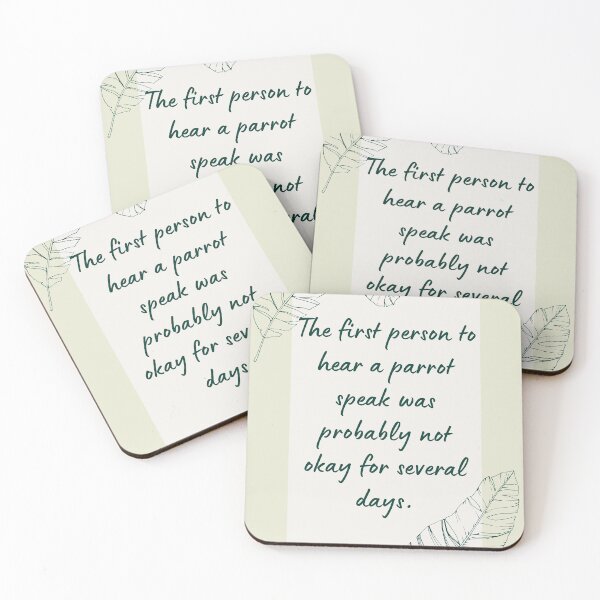 The first person to
hear a parrot
speak was
not
The first person to
hear a parrot
speak was
probably not
okay for several
The first person to
hear a parrot
speak was
probably not
okay for
days
The first person to
hear a parrot
speak was
probably not
okay for several
days.